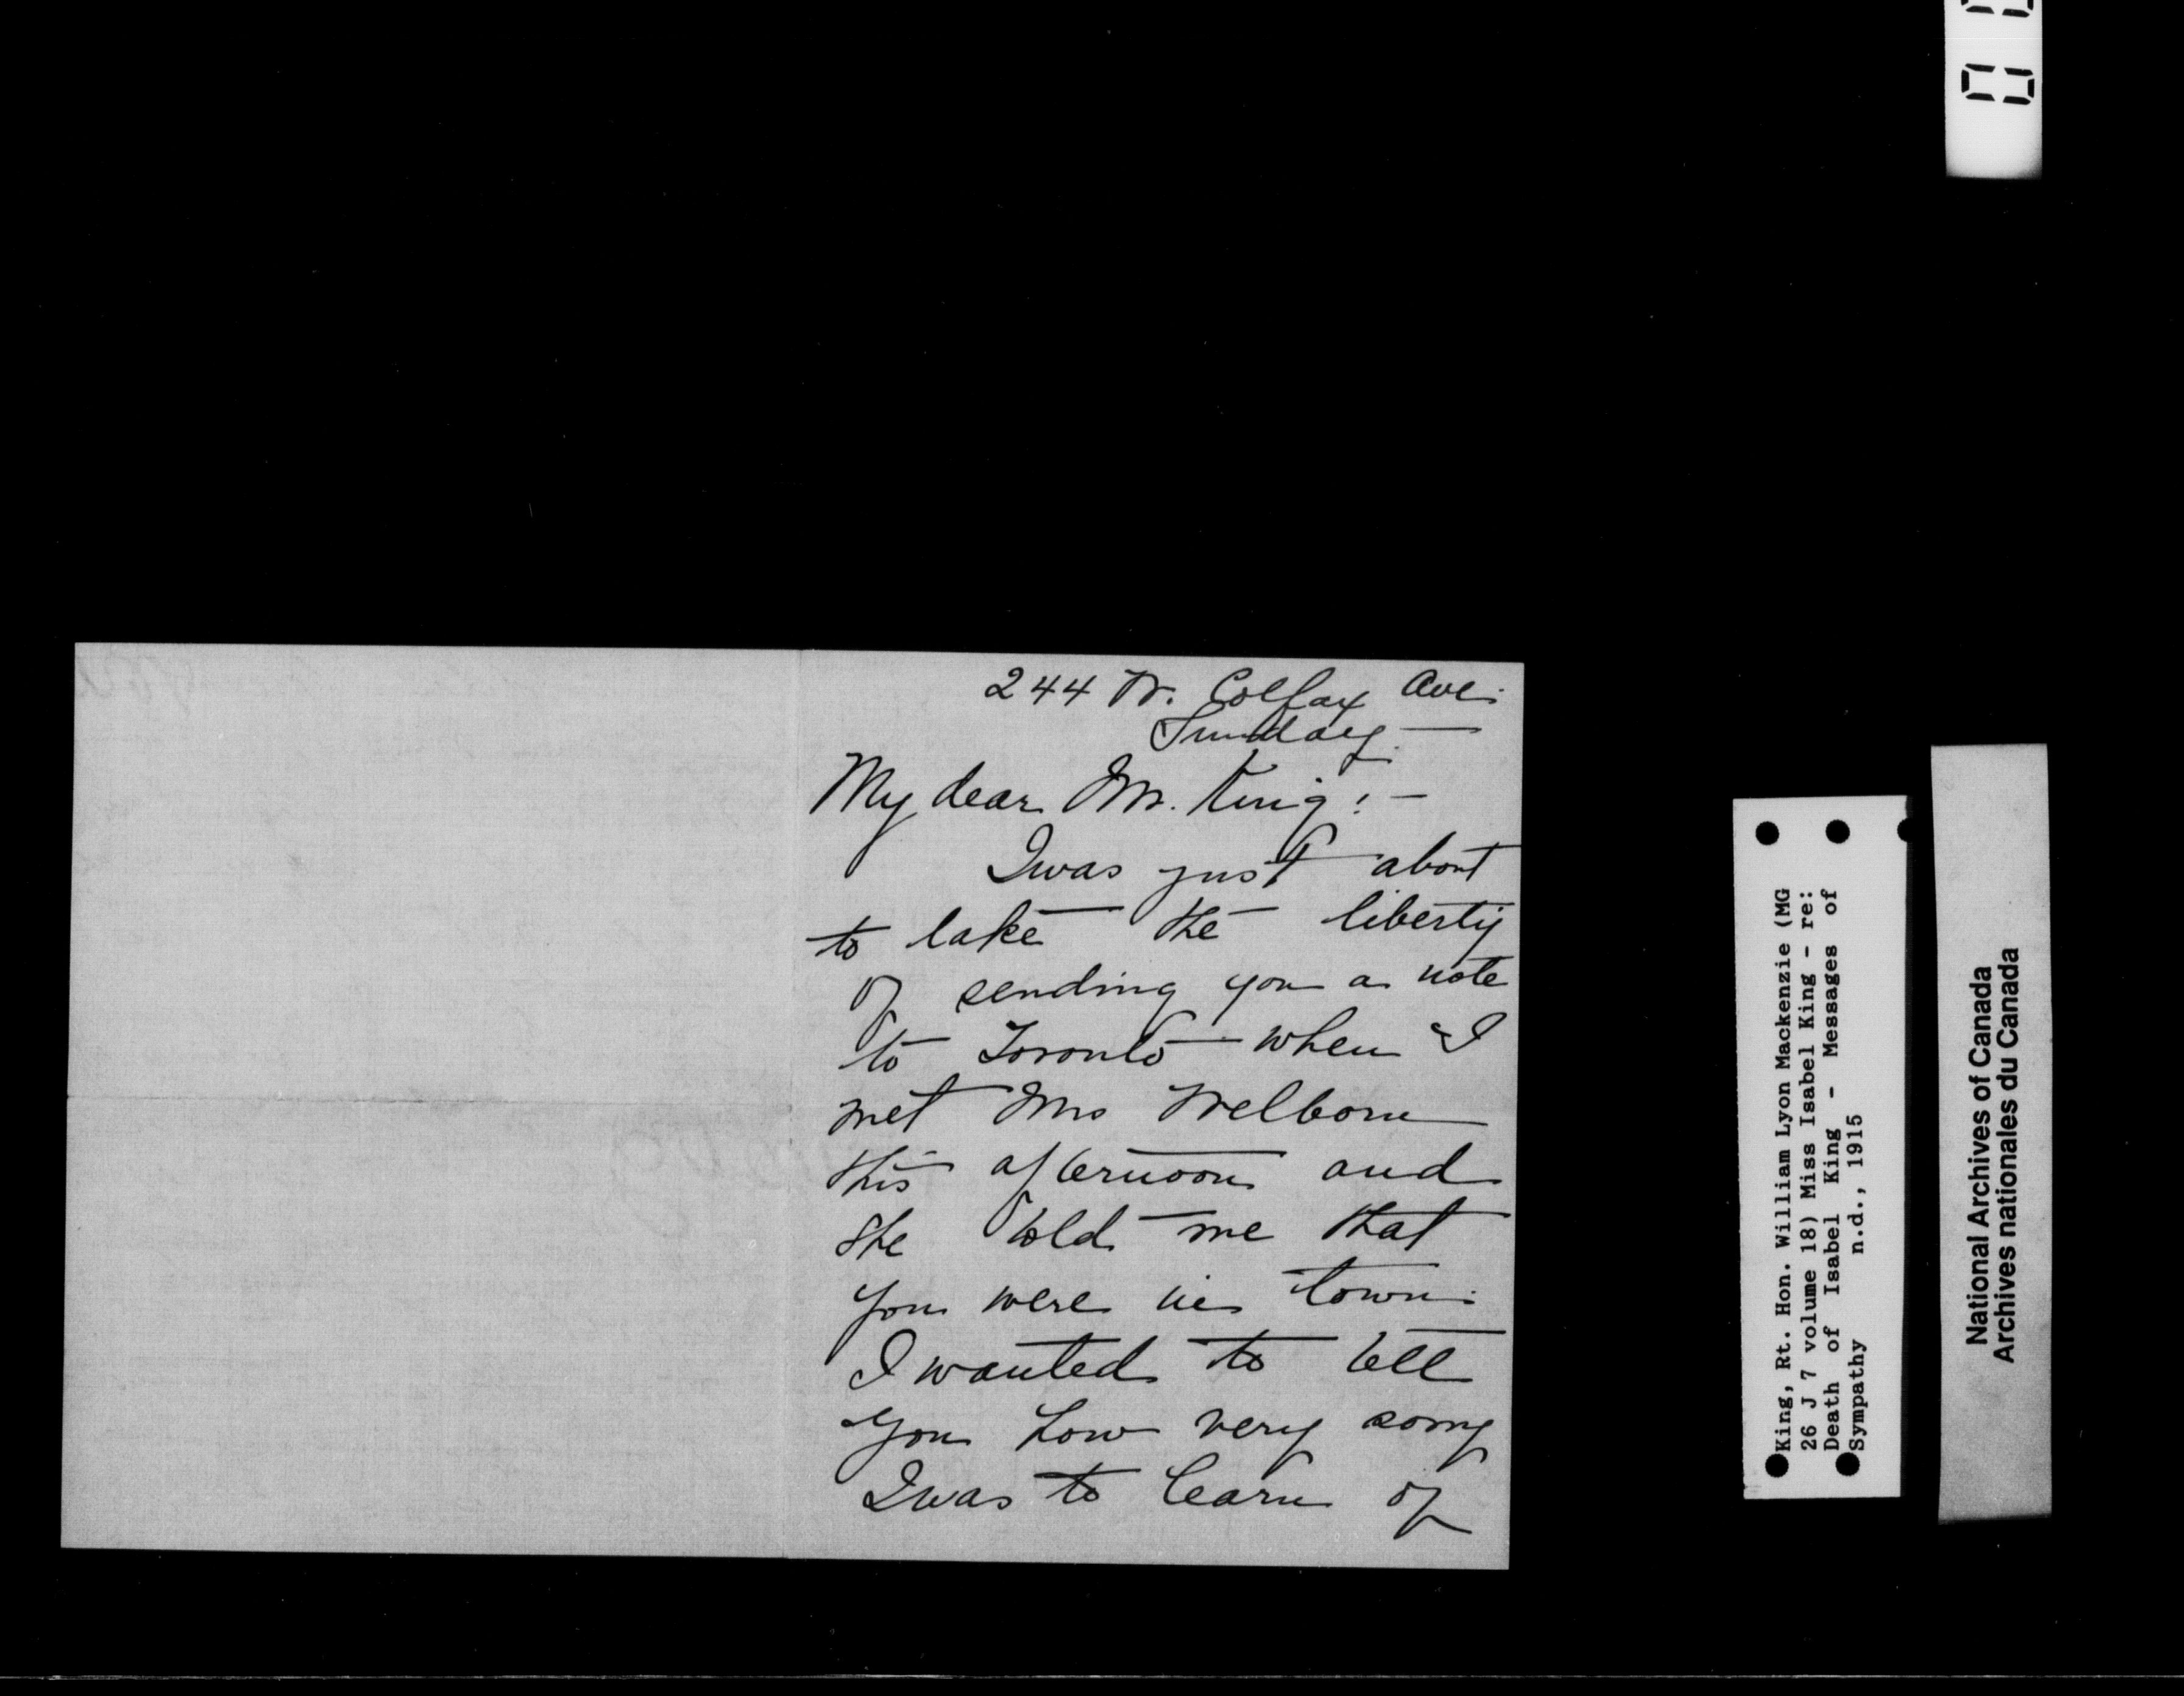 244 W. Colfax Ave.
Sunday. —
My dear Mr. King: —
I was just about
to take the liberty
of sending you a note
to Toronto when I
met Mrs Welborn
this afternoon and
she told me that
you were in town.
I wanted to tell
you how very sorry
I was to learn of
King, Rt. Hon. William Lyon Mackenzie (MG
26 J 7 volume 18) Miss Isabel King - re:
Death of Isabel King - Messages of
Sympathy n.d., 1915
National Archives of Canada
Archives nationales du Canada